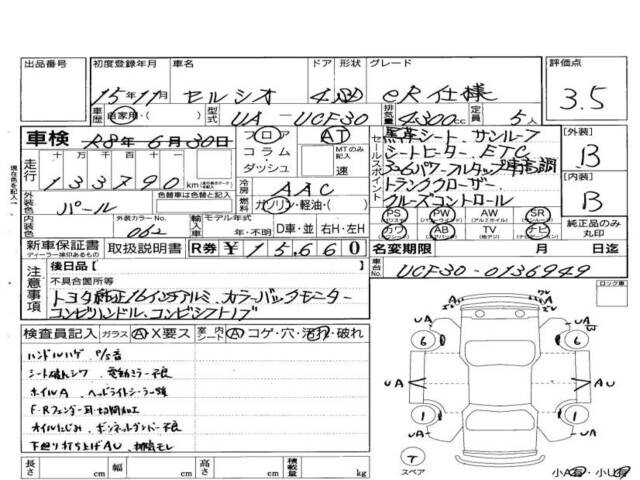 出品番号 初度登録年月 車名 ドア 形状 グレード 評価点
15年11月 セルシオ 4 eR仕様 3.5
車歴 自家用・( ) 型式 UA - UCF30 排気量 4300cc 定員 5人
車検 R8年6月30日 フロア AT
コラム・ダッシュ MTのみ記入 速
セールスポイント 革シート、サンルーフ
シートヒーター、ETC
トランククローザー、
クルーズコントロール
【外装】 B
【内装】 B
走行 十 万 千 百 十 一
133790 km
冷房 AAC
外装色 パール 燃料 ガソリン・軽油・( )
色替車は色替前の色を記入
内装色 外装カラーNo. 062 輸入車 モデル年式 年・不明 D車・並 右H・左H
PS PW AW SR
カワ AB TV ナビ
純正品のみ丸印
現在色を記入
新車保証書 取扱説明書 R券 ¥15,660 名変期限 月 日迄
ディーラー捺印あるもの
車台No. UCF30-0136949
注意事項 後日品【 】
不具合箇所等
トヨタ純正16インチアルミ、カラーバックモニター
コンビハンドル、コンビシフトノブ
ロック車
検査員記入 ガラス A・X要ス 室内シート A コゲ・穴・汚れ・破れ
ハンドルハゲ
シート破れ シワ、電動ミラー不良
ホイルA、ヘッドライト
F・Rフェンダー耳・切開加工
オイルにじみ、ボンネットダンパー不良
下廻り打ち上げAU、排気モレ
UA UA
6 6
UA AU
1 1
UA UA
T
スペア
小A有・小U有
長さ cm 幅 cm 高さ cm 積載量 kg